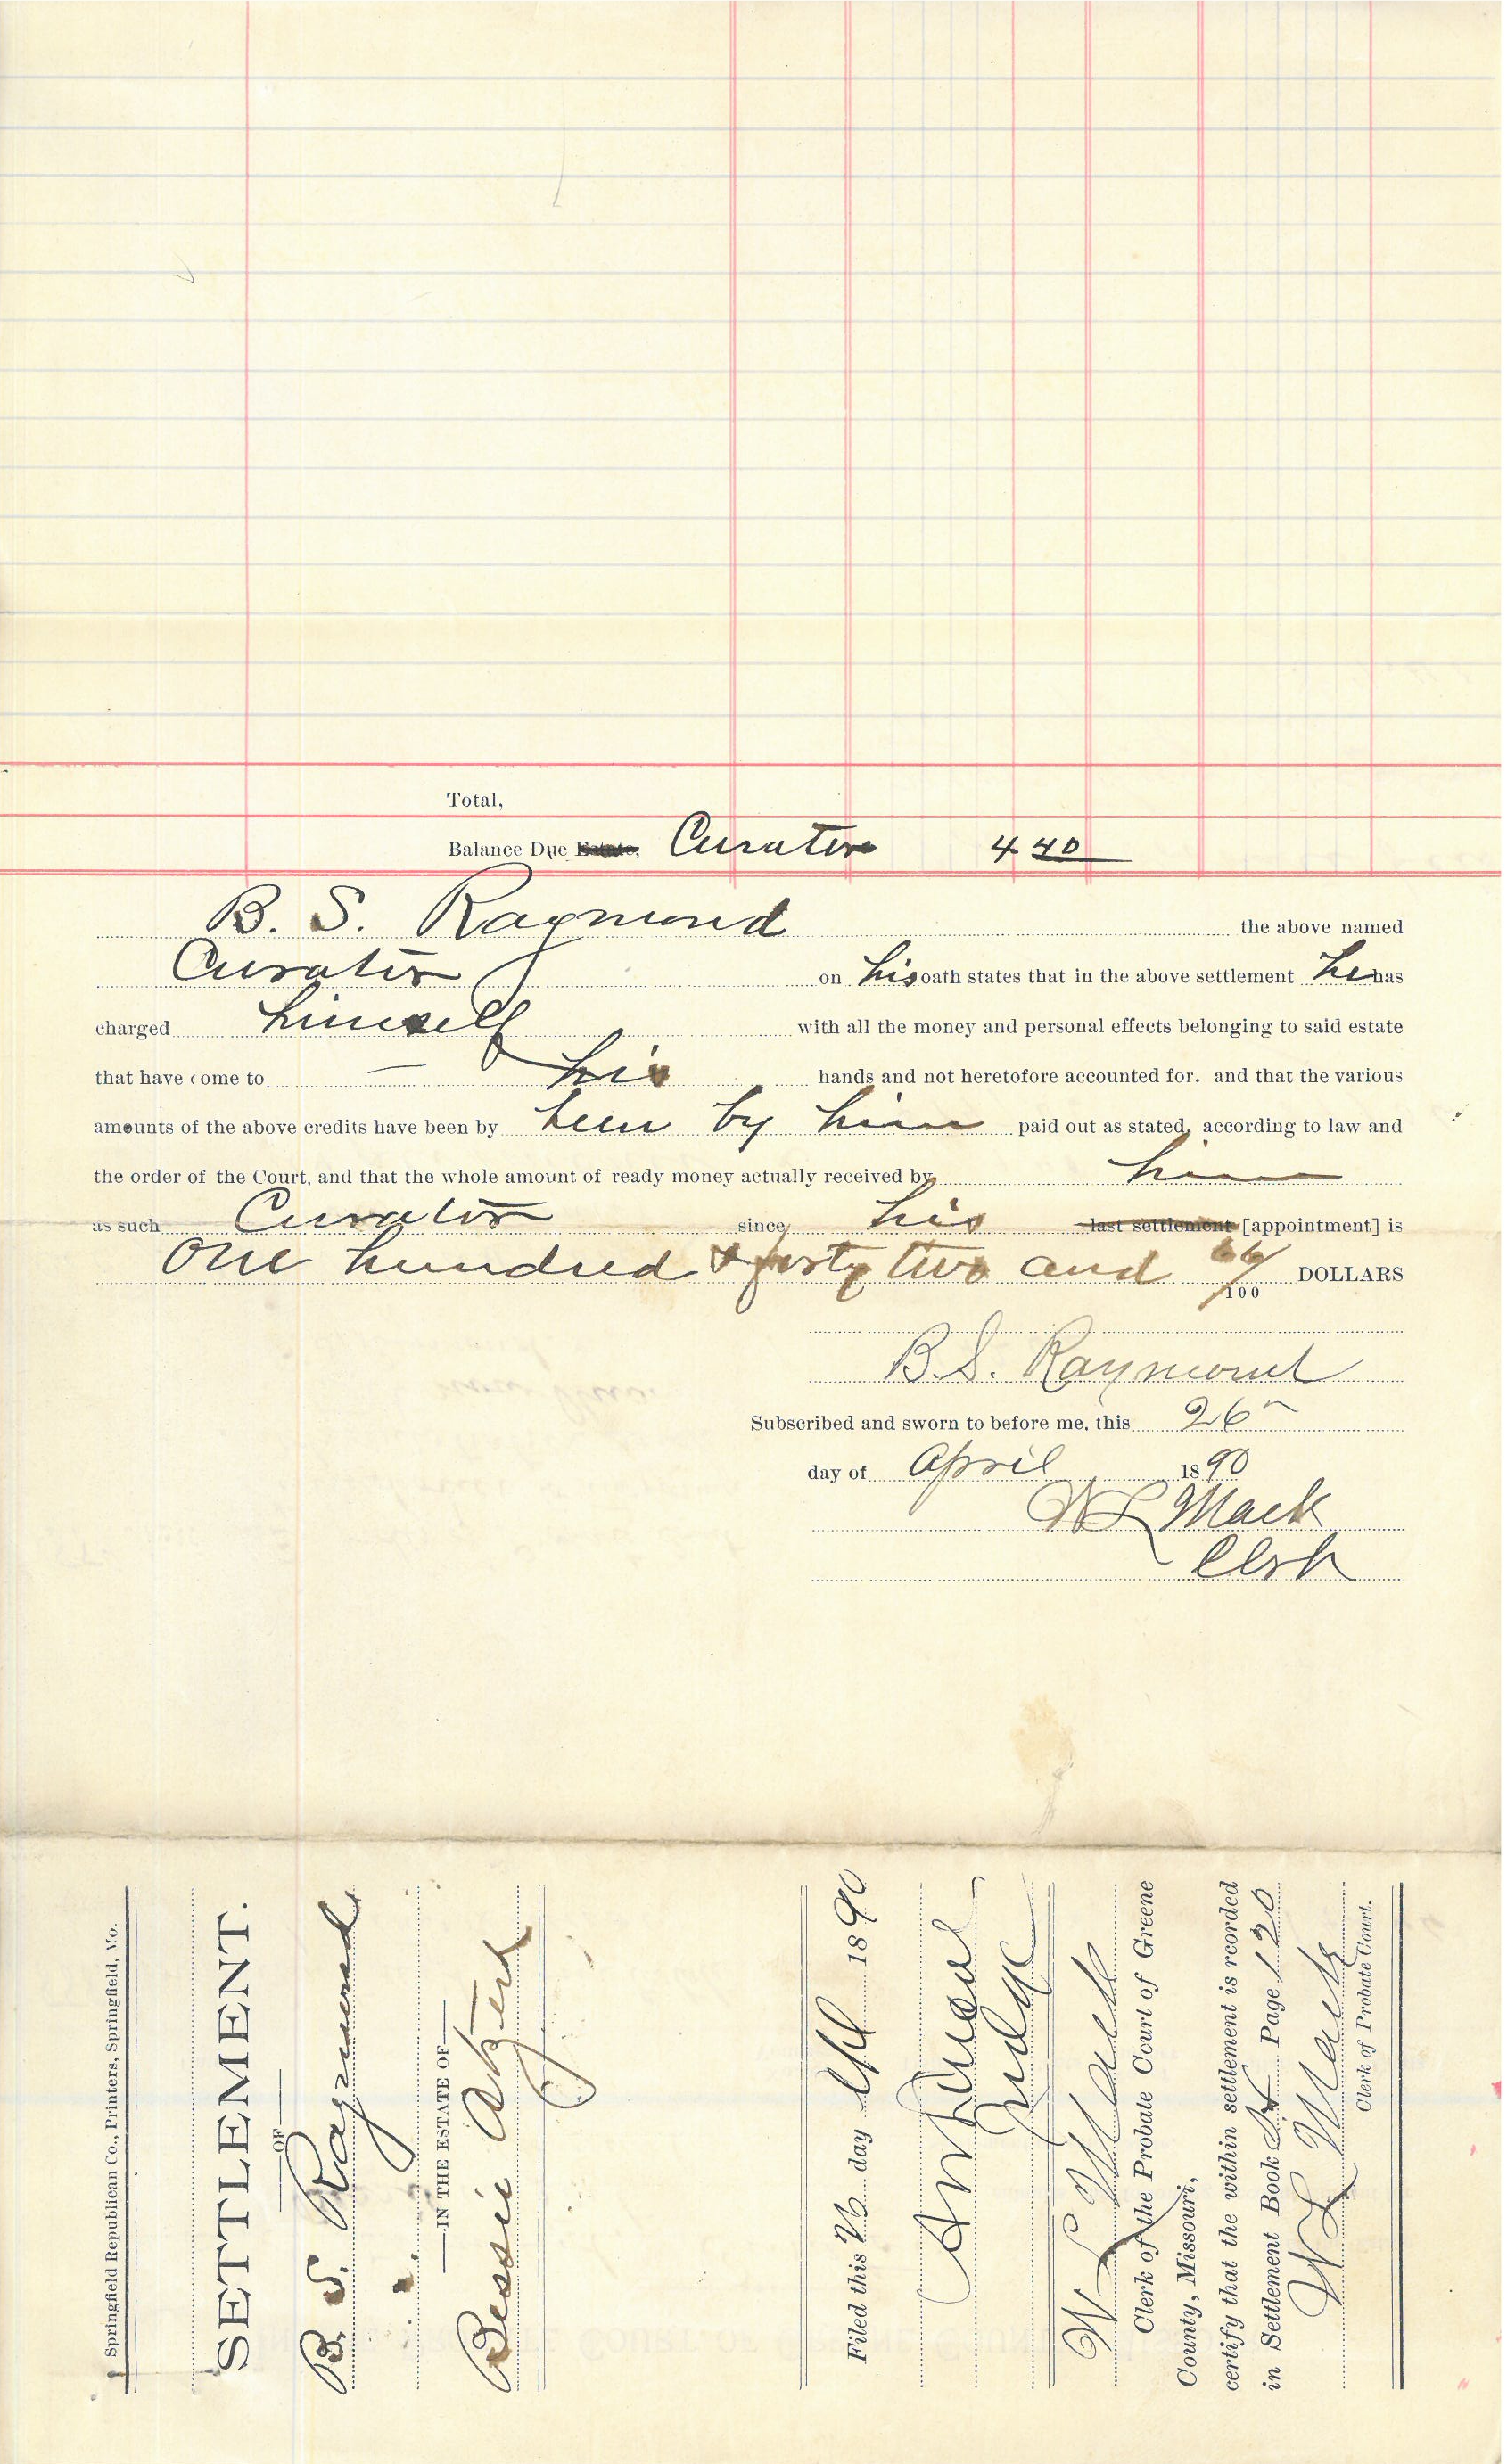 Total,
Balance Due Estate, Curator 4 40
B. S. Raymond the above named
Curator on his oath states that in the above settlement he has
charged himself with all the money and personal effects belonging to said estate
that have come to his hands and not heretofore accounted for. and that the various
amounts of the above credits have been by been by him paid out as stated, according to law and
the order of the Court, and that the whole amount of ready money actually received by him
as such Curator since his last settlement [appointment] is
One hundred & forty two and 66/100 DOLLARS
B.S. Raymond
Subscribed and sworn to before me, this 26
day of April 1890
W L Mack
Clerk
Springfield Republican Co., Printers, Springfield, Mo.
SETTLEMENT.
OF
B. S. Raymond
IN THE ESTATE OF
Bessie
Filed this 26 day Apl 1890
Judge
W L Mack
Clerk of the Probate Court of Greene
County, Missouri,
certify that the within settlement is rcorded
in Settlement Book Page 120
W L Mack
Clerk of Probate Court.